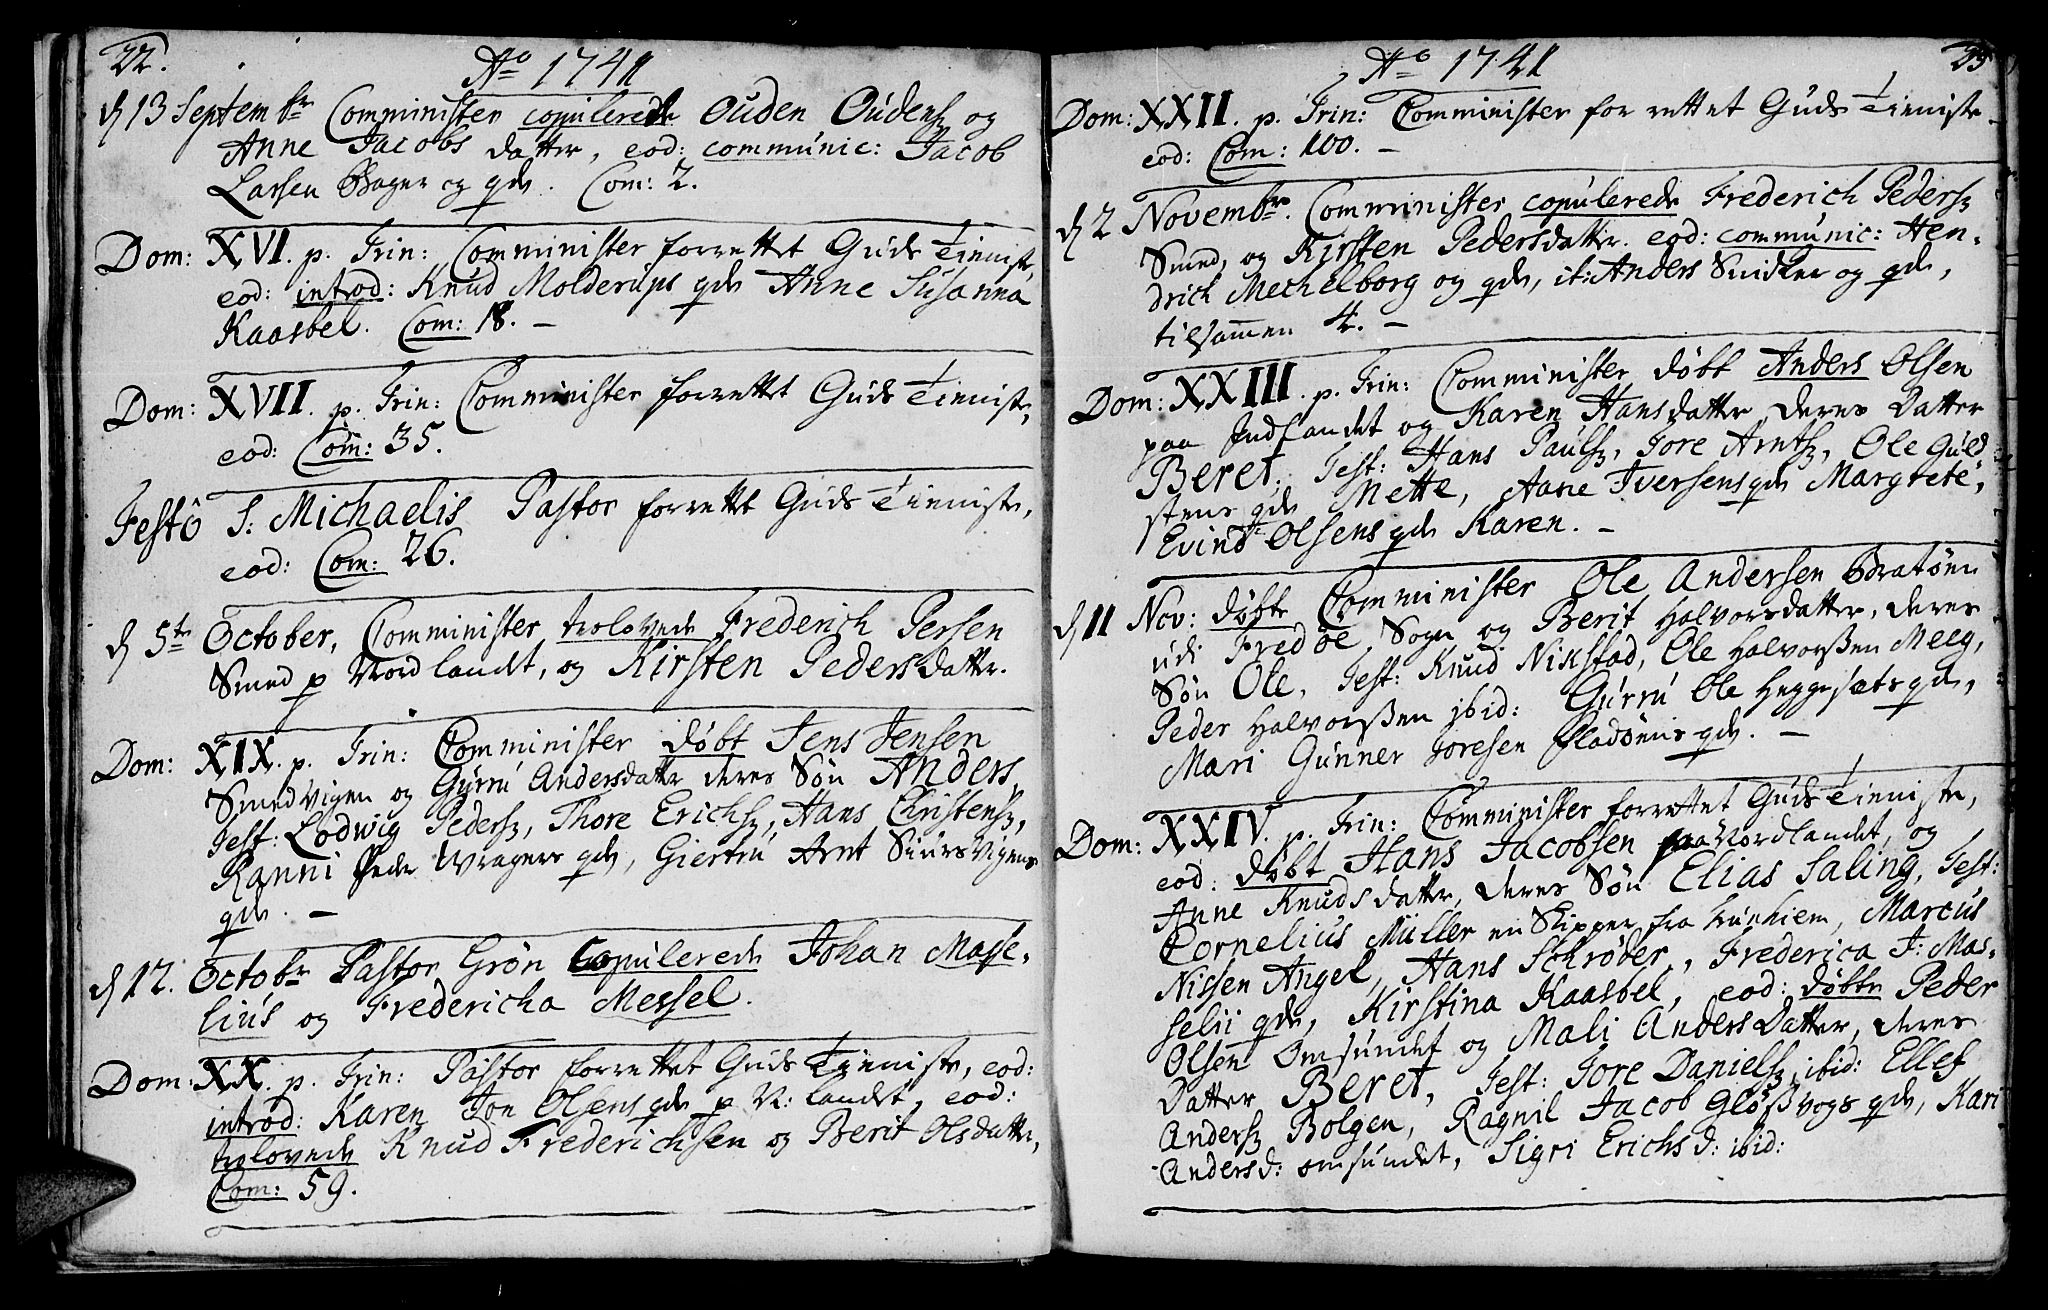 22.
Aō 1741
d 13 Septembr Comminister copulerede Ouden Oudens og
Anne Jacobs datter, eod: communic: Jacob
Larsen Bager og qde. Com: 2.
Dom: XVI. p. Trin: Comminister forrettet Guds Tieniste,
eod: introd: Knud Molderups qde Anne Susanna
Kaasbel. Com: 18. –
Dom: XVII. p. Trin: Comminister forrettet Guds Tieniste,
eod: Com: 35.
Festô S: Michaelis Pastor forrettet Guds Tieniste,
eod: Com: 26.
d 5te October, Comminister trolovede Frederich Persen
Smed p Nordlandet, og Kirsten Pedersdatter.
Dom: XIX. p. Trin: Comminister døbt Jens Jensen
Smedvigen og Gurru Andersdattr deres Søn Anders,
Test: Lodwig Peders, Thore Erichs, Hans Christens,
Ranni Peder Wragers qde, Giertru Arnt Siursvigens
qde. –
d 12. Octobr Pastor Grôn Copulerede Johan Masse-
lius og Fredericha Messel.
Dom: XX. p. Trin: Pastor forrettet Guds Tieniste, eod:
introd: Karen Jon Olsens qde p N: landet, eod:
trolovede Knud Frederichsen og Berit Olsdatter,
Com: 59.
23
Aō 1741
Dom: XXII. p. Trin: Comminister for rettet Guds Tieniste.
eod: Com: 100. –
d 2 Novembr. Comminister copulerede Frederich Peders
Smed, og Kirsten Pedersdatter. eod: communic: Hen-
drich Mechelborg og qde, it: Anders Snidker og qde,
tilsammen 4. –
Dom: XXIII. p. Trin: Comminister døbt Anders Olsen
paa Indlandet og Karen Hansdatter, deres Datter
Beret. Test: Hans Pauls, Tore Arnts, Ole Guld-
stens qde Mette, Aane Iversens qde Margrete,
Evind Olsens qde Karen. –
d 11 Nov: døbte Comminister Ole Andersen Bratøen
udi Fredøe Sogn og Berit Halvorsdatter, deres
Søn Ole, Test: Knud Nikstad, Ole Halvorßen Meeg,
Peder Halvorßen ibid: Gurru Ole Heggesæts qde,
Mari Gunner Toresen Fladøens qde. –
Dom: XXIV. p. Trin: Comminister forrettet Guds Tieniste,
eod: døbt Hans Jacobsen paa Nordlandet, og
Anne Knuds datter, deres Søn Elias Saling, Test:
Cornelius Müller en Skipper fra Trunhiem, Marcus
Nissen Angel, Hans Schrøder, Frederica J: Mas-
selii qde, Kirstina Kaasbel, eod: døbte Peder
Olsen Omsundet og Mali Anders Datter, deres
Datter Beret, Test: Tore Daniels, ibid: Ellef
Anders Bolgen, Ragnil Jacob Gløßvogs qde, Kari
Anders d: omsundet, Sigri Erichs d: ibid: